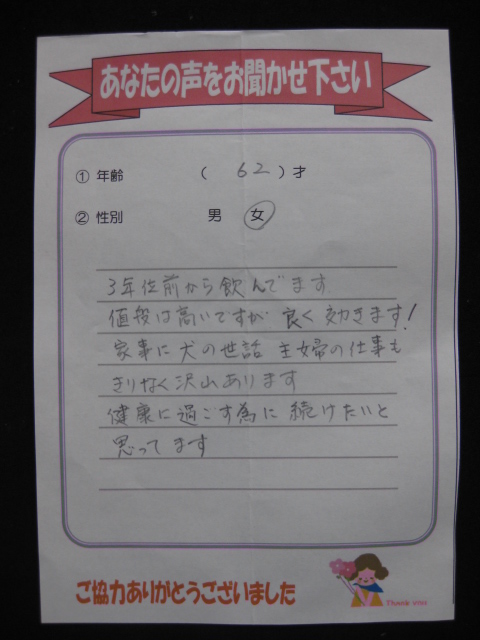 あなたの声をお聞かせ下さい
① 年齢 ( 62 ) 才
② 性別 男 女
3年位前から飲んでます
値段は高いですが 良く効きます!
家事に犬の世話 主婦の仕事も
きりなく沢山あります
健康に過ごす為に続けたいと
思ってます
ご協力ありがとうございました
Thank you